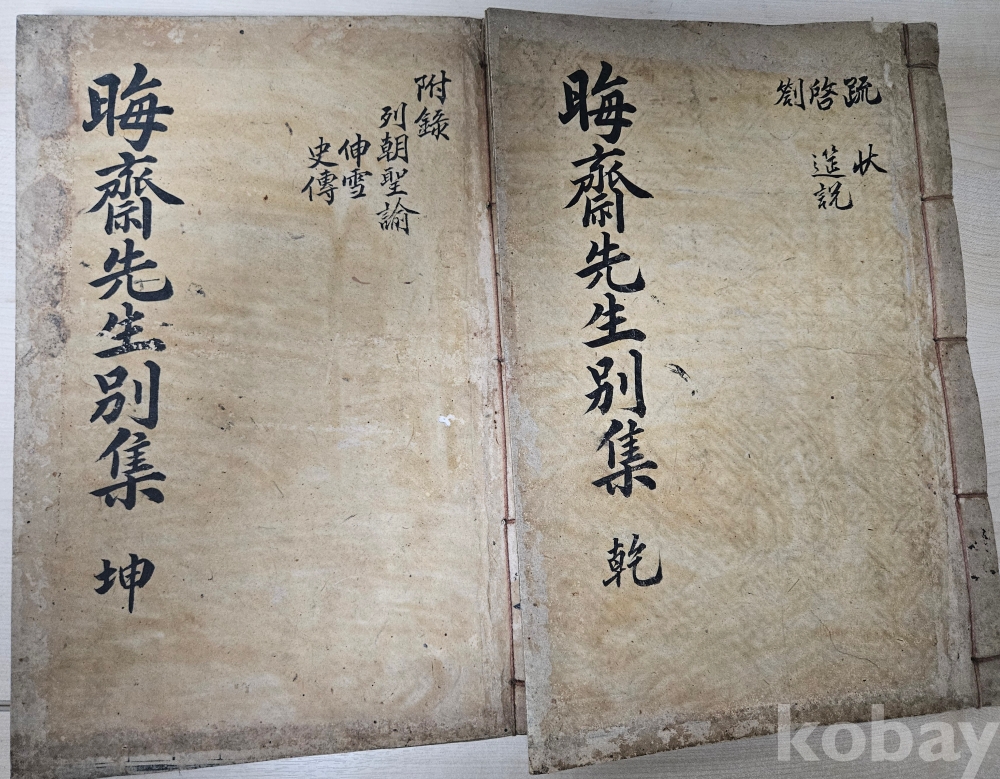 疏 狀
啓 說
劄 筵
晦齋先生別集 乾
附錄
列朝聖諭
伸雪
史傳
晦齋先生別集 坤
kobay